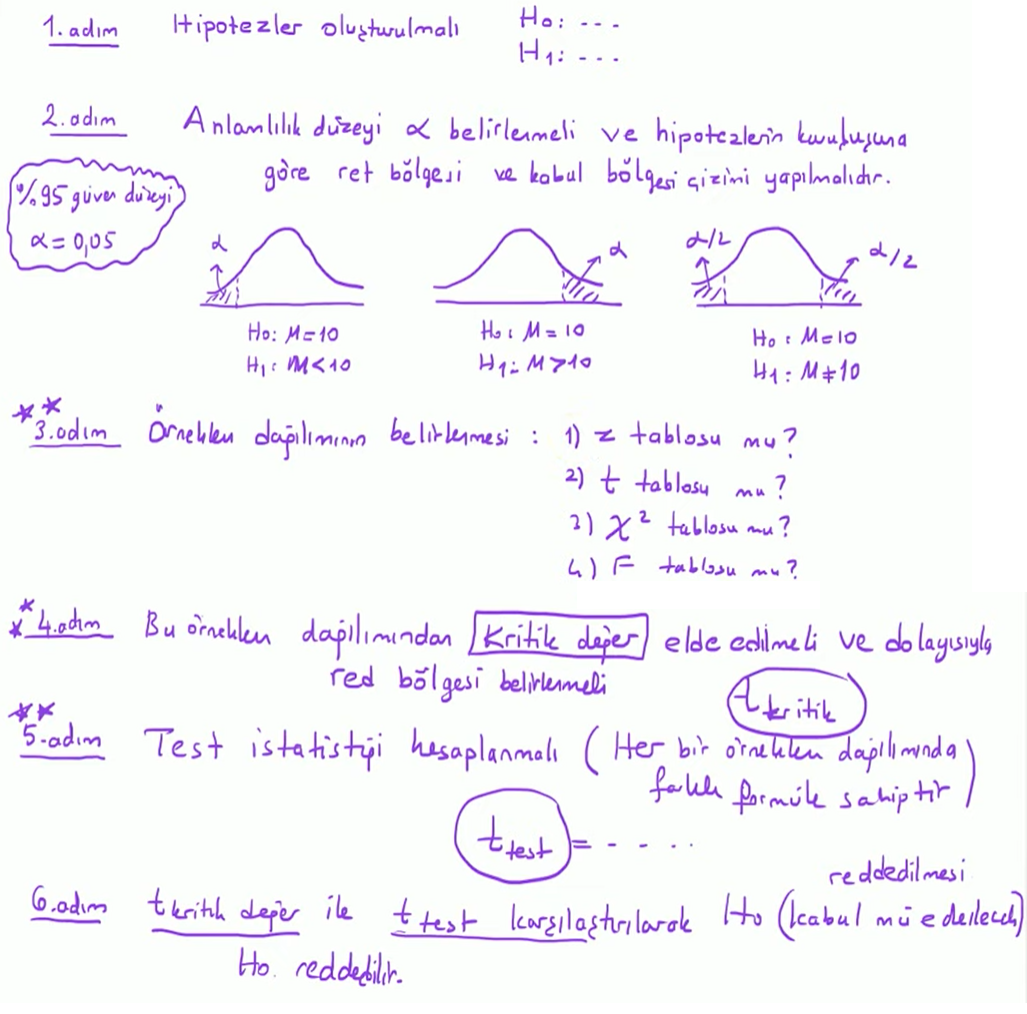 1. adım Hipotezler oluşturulmalı H₀: ---
H₁: ---
2. adım Anlamlılık düzeyi α belirlenmeli ve hipotezlerin kuruluşuna
göre ret bölgesi ve kabul bölgesi çizimi yapılmalıdır.
%95 güven düzeyi
α = 0,05
α
α
α/2
α/2
H₀: M=10
H₁: M<10
H₀: M=10
H₁: M>10
H₀: M=10
H₁: M≠10
** 3. adım Örneklem dağılımının belirlenmesi : 1) z tablosu mu?
2) t tablosu mu?
3) χ² tablosu mu?
4) F tablosu mu?
** 4. adım Bu örneklem dağılımından Kritik değer elde edilmeli ve dolayısıyla
red bölgesi belirlenmeli
t kritik
** 5. adım Test istatistiği hesaplanmalı (Her bir örneklem dağılımında
farklı formüle sahiptir)
t test = - - - - -
reddedilmesi
6. adım t kritik değer ile t test karşılaştırılarak H₀ (kabul mü edilecek)
H₀ reddedilir.